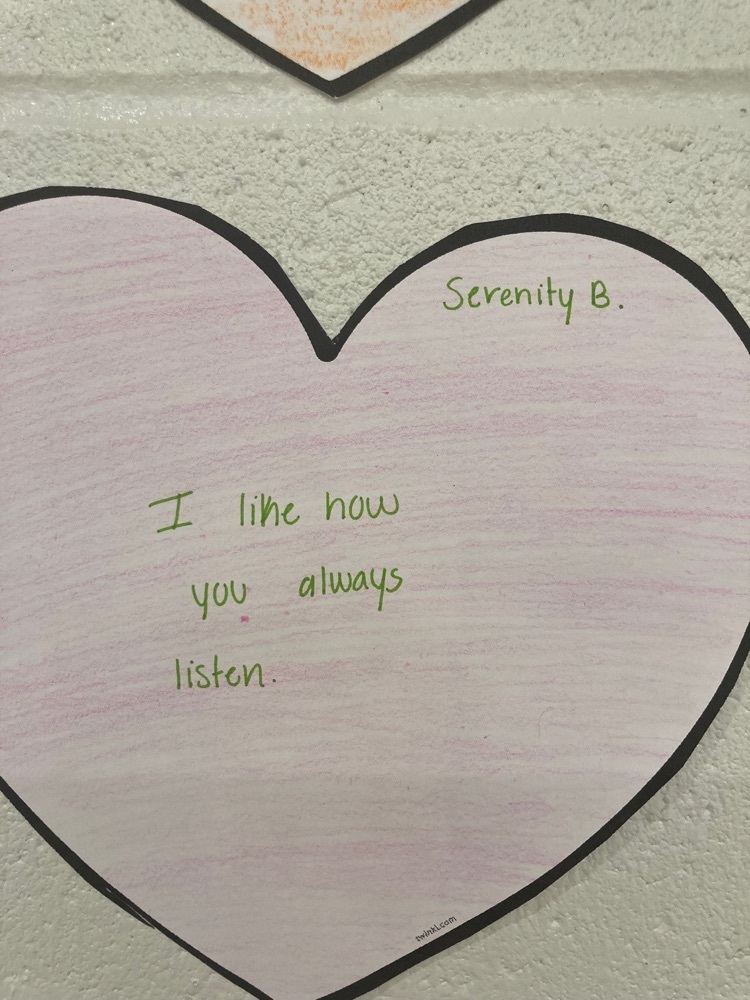 Serenity B.
I like how
you always
listen.
twinkl.com